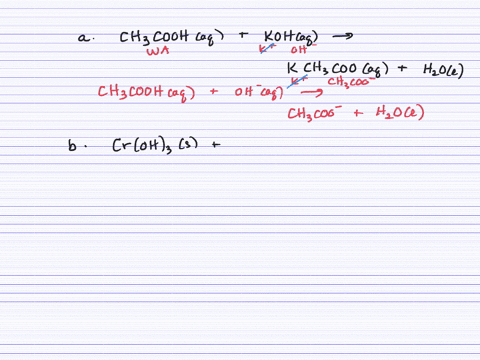 a. CH3COOH (aq) + KOH(aq) →
WA K+ OH-
K CH3COO (aq) + H2O(l)
K+ CH3COO-
CH3COOH(aq) + OH-(aq) →
CH3COO- + H2O(l)
b. Cr(OH)3 (s) +